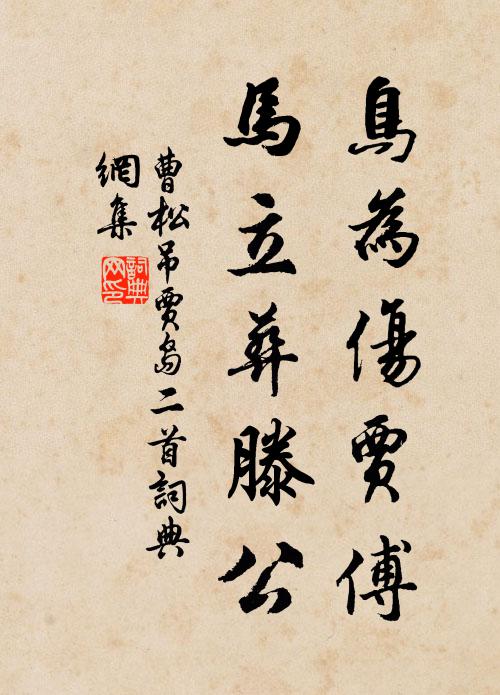 鳥為傷賈傅
馬立葬滕公
曹松吊賈島二首詞典
網集
詞典
網印